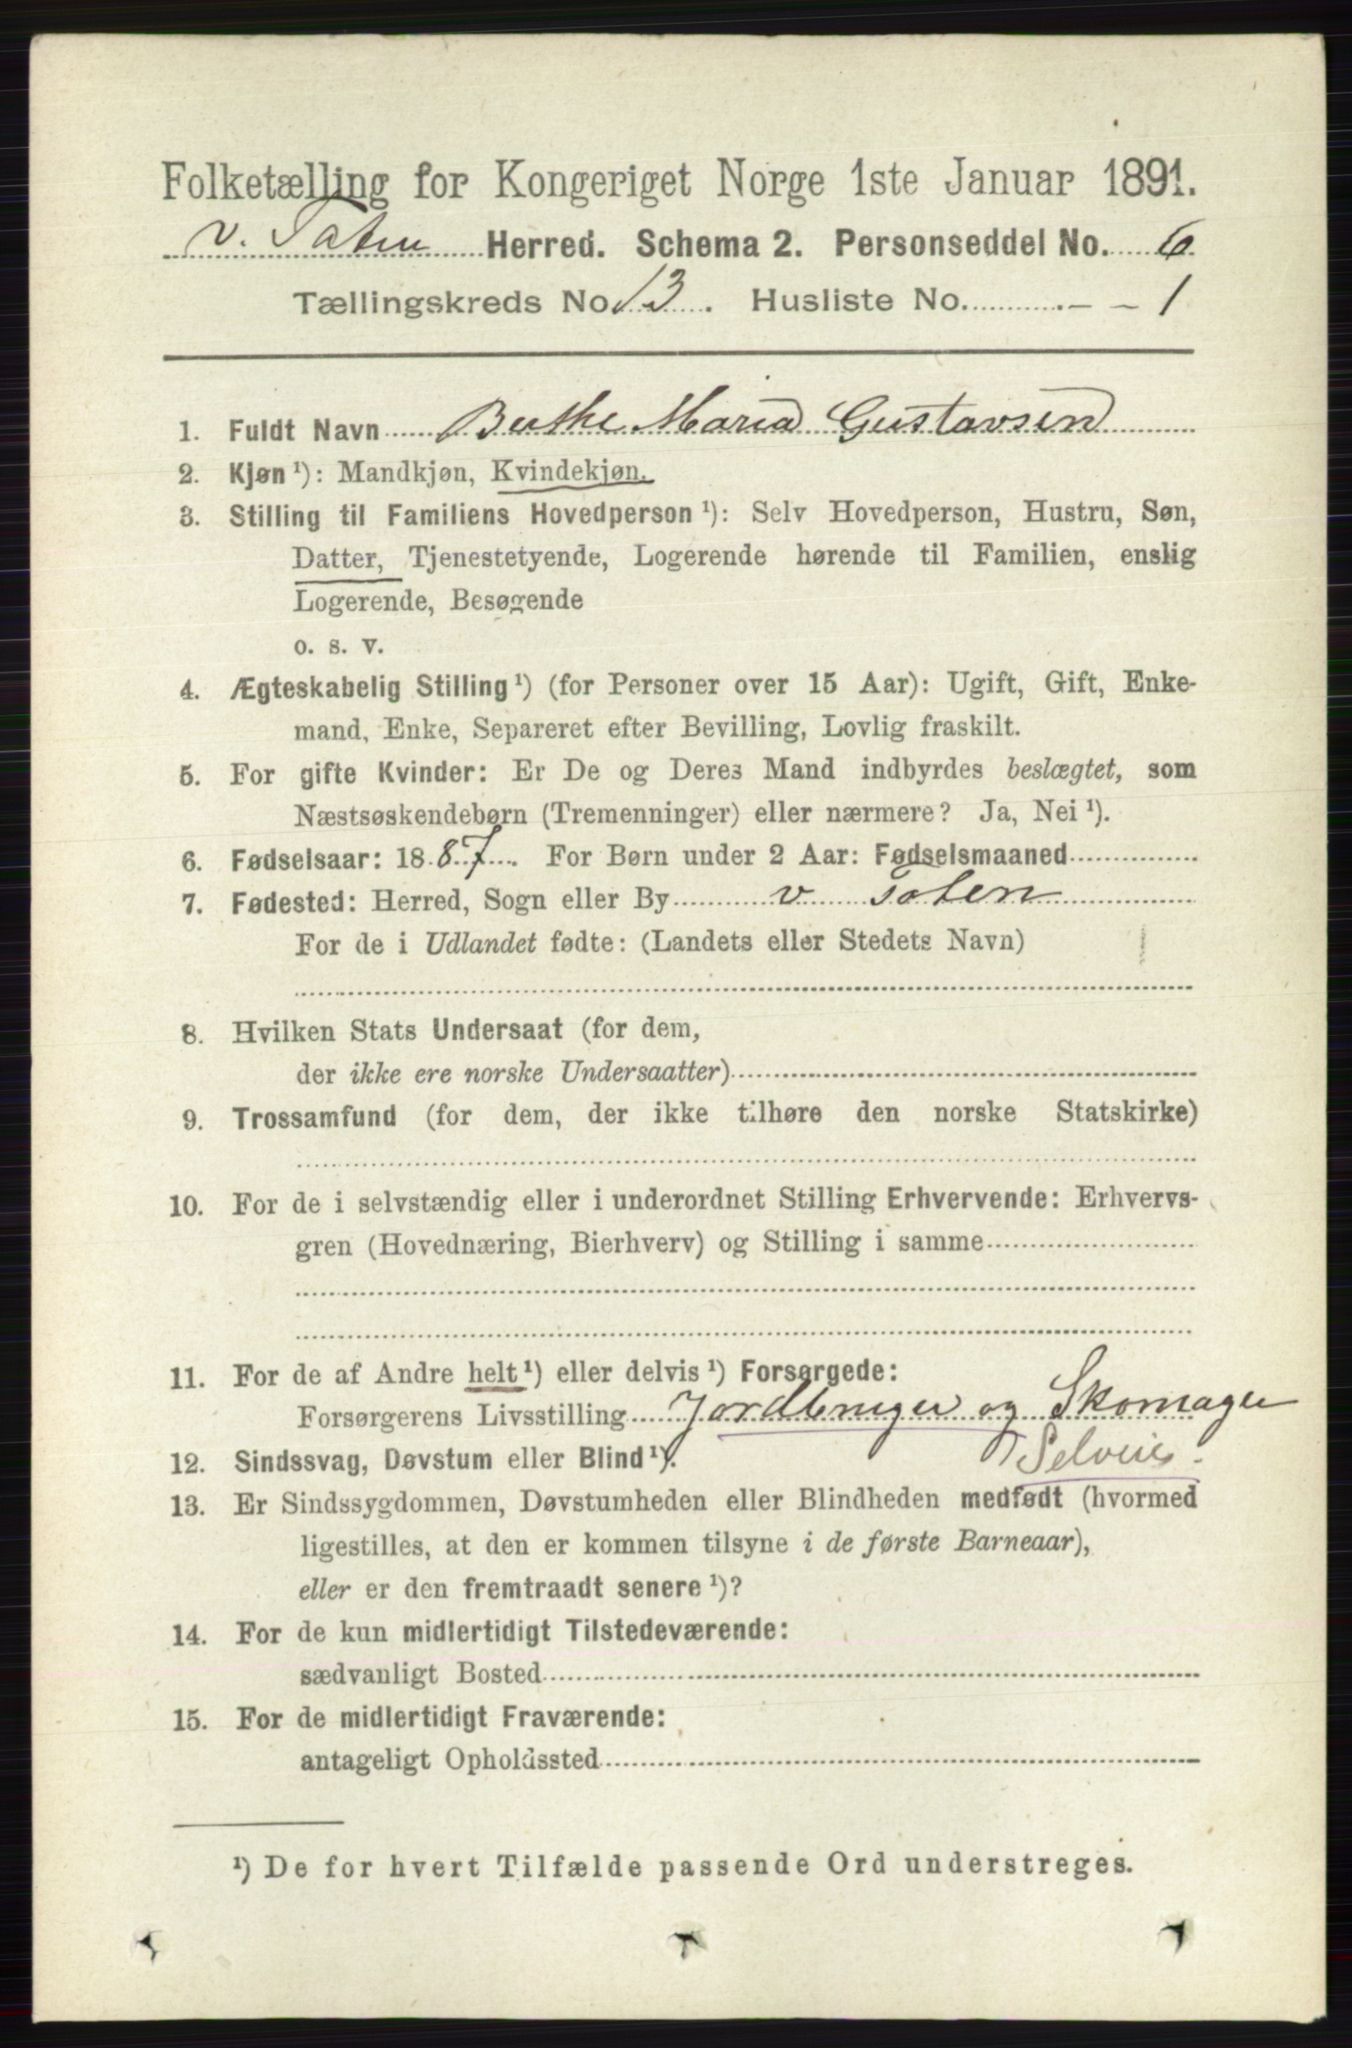 Folketælling for Kongeriget Norge 1ste Januar 1891.
v. Toten Herred. Schema 2. Personseddel No. 6
Tællingskreds No 13. Husliste No. 1
1. Fuldt Navn Berthe Maria Gustavsen
2. Kjøn ¹): Mandkjøn, Kvindekjøn.
3. Stilling til Familiens Hovedperson ¹): Selv Hovedperson, Hustru, Søn,
Datter, Tjenestetyende, Logerende hørende til Familien, enslig
Logerende, Besøgende
o. s. v.
4. Ægteskabelig Stilling ¹) (for Personer over 15 Aar): Ugift, Gift, Enke-
mand, Enke, Separeret efter Bevilling, Lovlig fraskilt.
5. For gifte Kvinder: Er De og Deres Mand indbyrdes beslægtet, som
Næstsøskendebørn (Tremenninger) eller nærmere? Ja, Nei ¹).
6. Fødselsaar: 1887. For Børn under 2 Aar: Fødselsmaaned
7. Fødested: Herred, Sogn eller By v Toten
For de i Udlandet fødte: (Landets eller Stedets Navn)
8. Hvilken Stats Undersaat (for dem,
der ikke ere norske Undersaatter)
9. Trossamfund (for dem, der ikke tilhøre den norske Statskirke)
10. For de i selvstændig eller i underordnet Stilling Erhvervende: Erhvervs-
gren (Hovednæring, Bierhverv) og Stilling i samme
11. For de af Andre helt ¹) eller delvis ¹) Forsørgede:
Forsørgerens Livsstilling Jordbruger og Skomager
12. Sindssvag, Døvstum eller Blind ¹). Selveier
13. Er Sindssygdommen, Døvstumheden eller Blindheden medfødt (hvormed
ligestilles, at den er kommen tilsyne i de første Barneaar),
eller er den fremtraadt senere ¹)?
14. For de kun midlertidigt Tilstedeværende:
sædvanligt Bosted
15. For de midlertidigt Fraværende:
antageligt Opholdssted
¹) De for hvert Tilfælde passende Ord understreges.